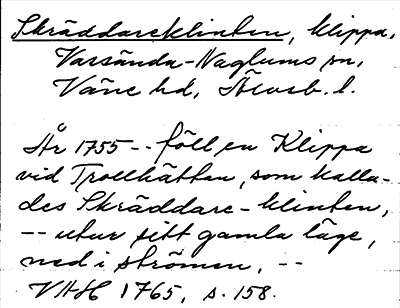 Skräddareklinten, klippa,
Varsända-Naglums sn,
Väne hd, Älvsb. l.
År 1755 -- föll en Klippa
vid Trollhättan, som kalla-
des Skräddare-klinten,
-- utur sitt gamla läge,
ned i strömen. --
VAH 1765, s. 158.